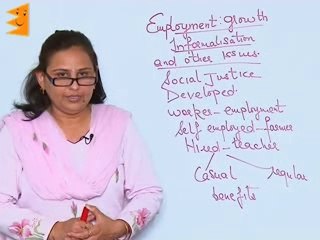 Employment: growth
Informalisation
and other issues.
Social Justice
Developed
worker - employment
Self employed - farmer
Hired - teacher
Casual regular
benefits